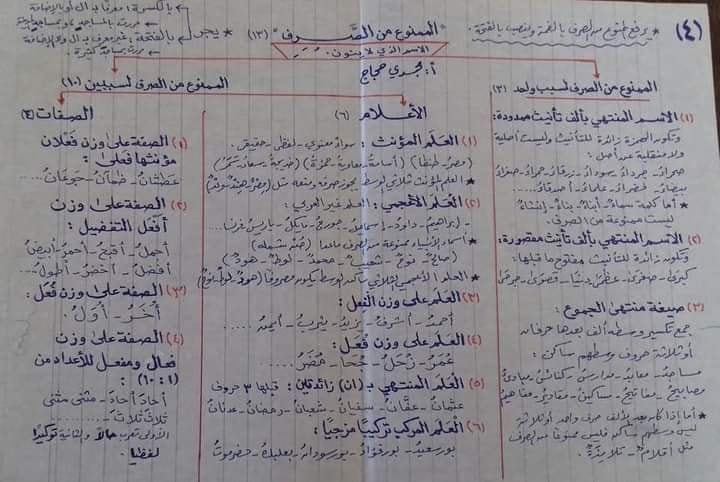 (٤)
* يرفع الممنوع من الصرف بالضمة وينصب بالفتحة.
"الممنوع من الصَّرف" (١٣)
الاسم الذي لا ينون.
أ: مجدي حجاج
* يجر
بالكسرة: معرفًا بـ ال أو بالإضافة
بالفتحة: غير معرف بـ ال ولا بالإضافة
الممنوع من الصرف لسبب واحد (٣)
(١) الاسم المنتهي بألف تأنيث ممدودة:
وتكون الهمزة زائدة للتأنيث وليست أصلية
ولا منقلبة عن أصل:
صحراءُ - سوداءُ - زرقاءُ - حمراءُ - صفراءُ
بيضاءُ - خضراءُ - علماءُ - أصدقاءُ...
* أما كلمة سماءٌ - أبناءٌ - بناءٌ - إنشاءٌ
ليست ممنوعة من الصرف.
(٢) الاسم المنتهي بألف تأنيث مقصورة:
وتكون زائدة للتأنيث مفتوح ما قبلها:
كبرى - صغرى - عظمى - دنيا - قصوى - جرحى
(٣) صيغة منتهى الجموع:
جمع تكسير وسطه ألف بعدها حرفان
أو ثلاثة حروف وسطهم ساكن:
مساجدُ - معابدُ - مدارسُ - كنائسُ - مبادئُ
مصابيحُ - مفاتيحُ - مساكينُ - مقاديرُ - مفاهيمُ
* أما إذا كان بعد الألف حرف واحد أو ثلاثة
ليس وسطهم ساكن فليس ممنوعًا من الصرف
مثل أقلامٌ - تلامذةٌ
الممنوع من الصرف لسببين (١٠)
الأعلام (٦)
(١) العَلَم المؤنث: سواء معنوي - لفظي - حقيقي.
(مصرُ - طنطا) (أسامةُ - معاويةُ - حمزةُ) (خديجةُ - سعادُ - سمرُ)
* العلم المؤنث ثلاثي الوسط يجوز صرفه ومنعه مثل (مصْر - هنْد - نوْلة)
(٢) العَلَم الأعجمي: العلم غير العربي:
- إبراهيمُ - داودُ - إسماعيلُ - جورجُ - مايكلُ - باريسُ - فرنسا...
* أسماء الأنبياء ممنوعة من الصرف ما عدا (صُنْ شَمْله)
(صالحٌ - نوحٌ - شعيبٌ - محمدٌ - لوطٌ - هودٌ)
* العلم الأعجمي الثلاثي ساكن الوسط يكون مصروفًا (هودٌ - لوطٌ - نوحٌ)
(٣) العَلَم على وزن الفعل:
أحمدُ - أشرفُ - يزيدُ - يثربُ - أيمنُ....
(٤) العَلَم على وزن فُعَل:
عُمَرُ - زُحَلُ - جُحا - مُضَرُ
(٥) العَلَم المنتهي بـ (ان) زائدتين: قبلها ٣ حروف
عثمانُ - عفَّانُ - سفيانُ - شعبانُ - رمضانُ - عدنانُ
(٦) العَلَم المركب تركيبًا مزجيًّا:
بورسعيدُ - بورفؤادُ - بورسودانُ - بعلبكُ - حضرموتُ
الصفات (٤)
(١) الصفة على وزن فَعْلان
مؤنثها فَعْلى:
عَطشانُ - ظمآنُ - جوعانُ...
(٢) الصفة على وزن
أفعَل التفضيل:
أجملُ - أقبحُ - أحمرُ - أبيضُ
أفضلُ - أخضرُ - أطولُ...
(٣) الصفة على وزن فُعَل:
أُخَرُ - أُوَلُ.
(٤) الصفة على وزن
فعال ومفعل للأعداد من
(١ : ١٠):
أُحادَ أُحادَ - مثنى مثنى
ثلاثَ ثلاثَ.......
الأولى تعرب حالًا والثانية توكيدًا
لفظيا.